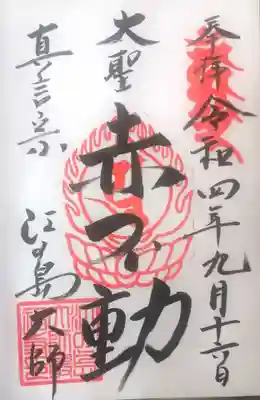 奉拝 令和四年九月十六日
大聖
赤不動
真言宗
江の島大師